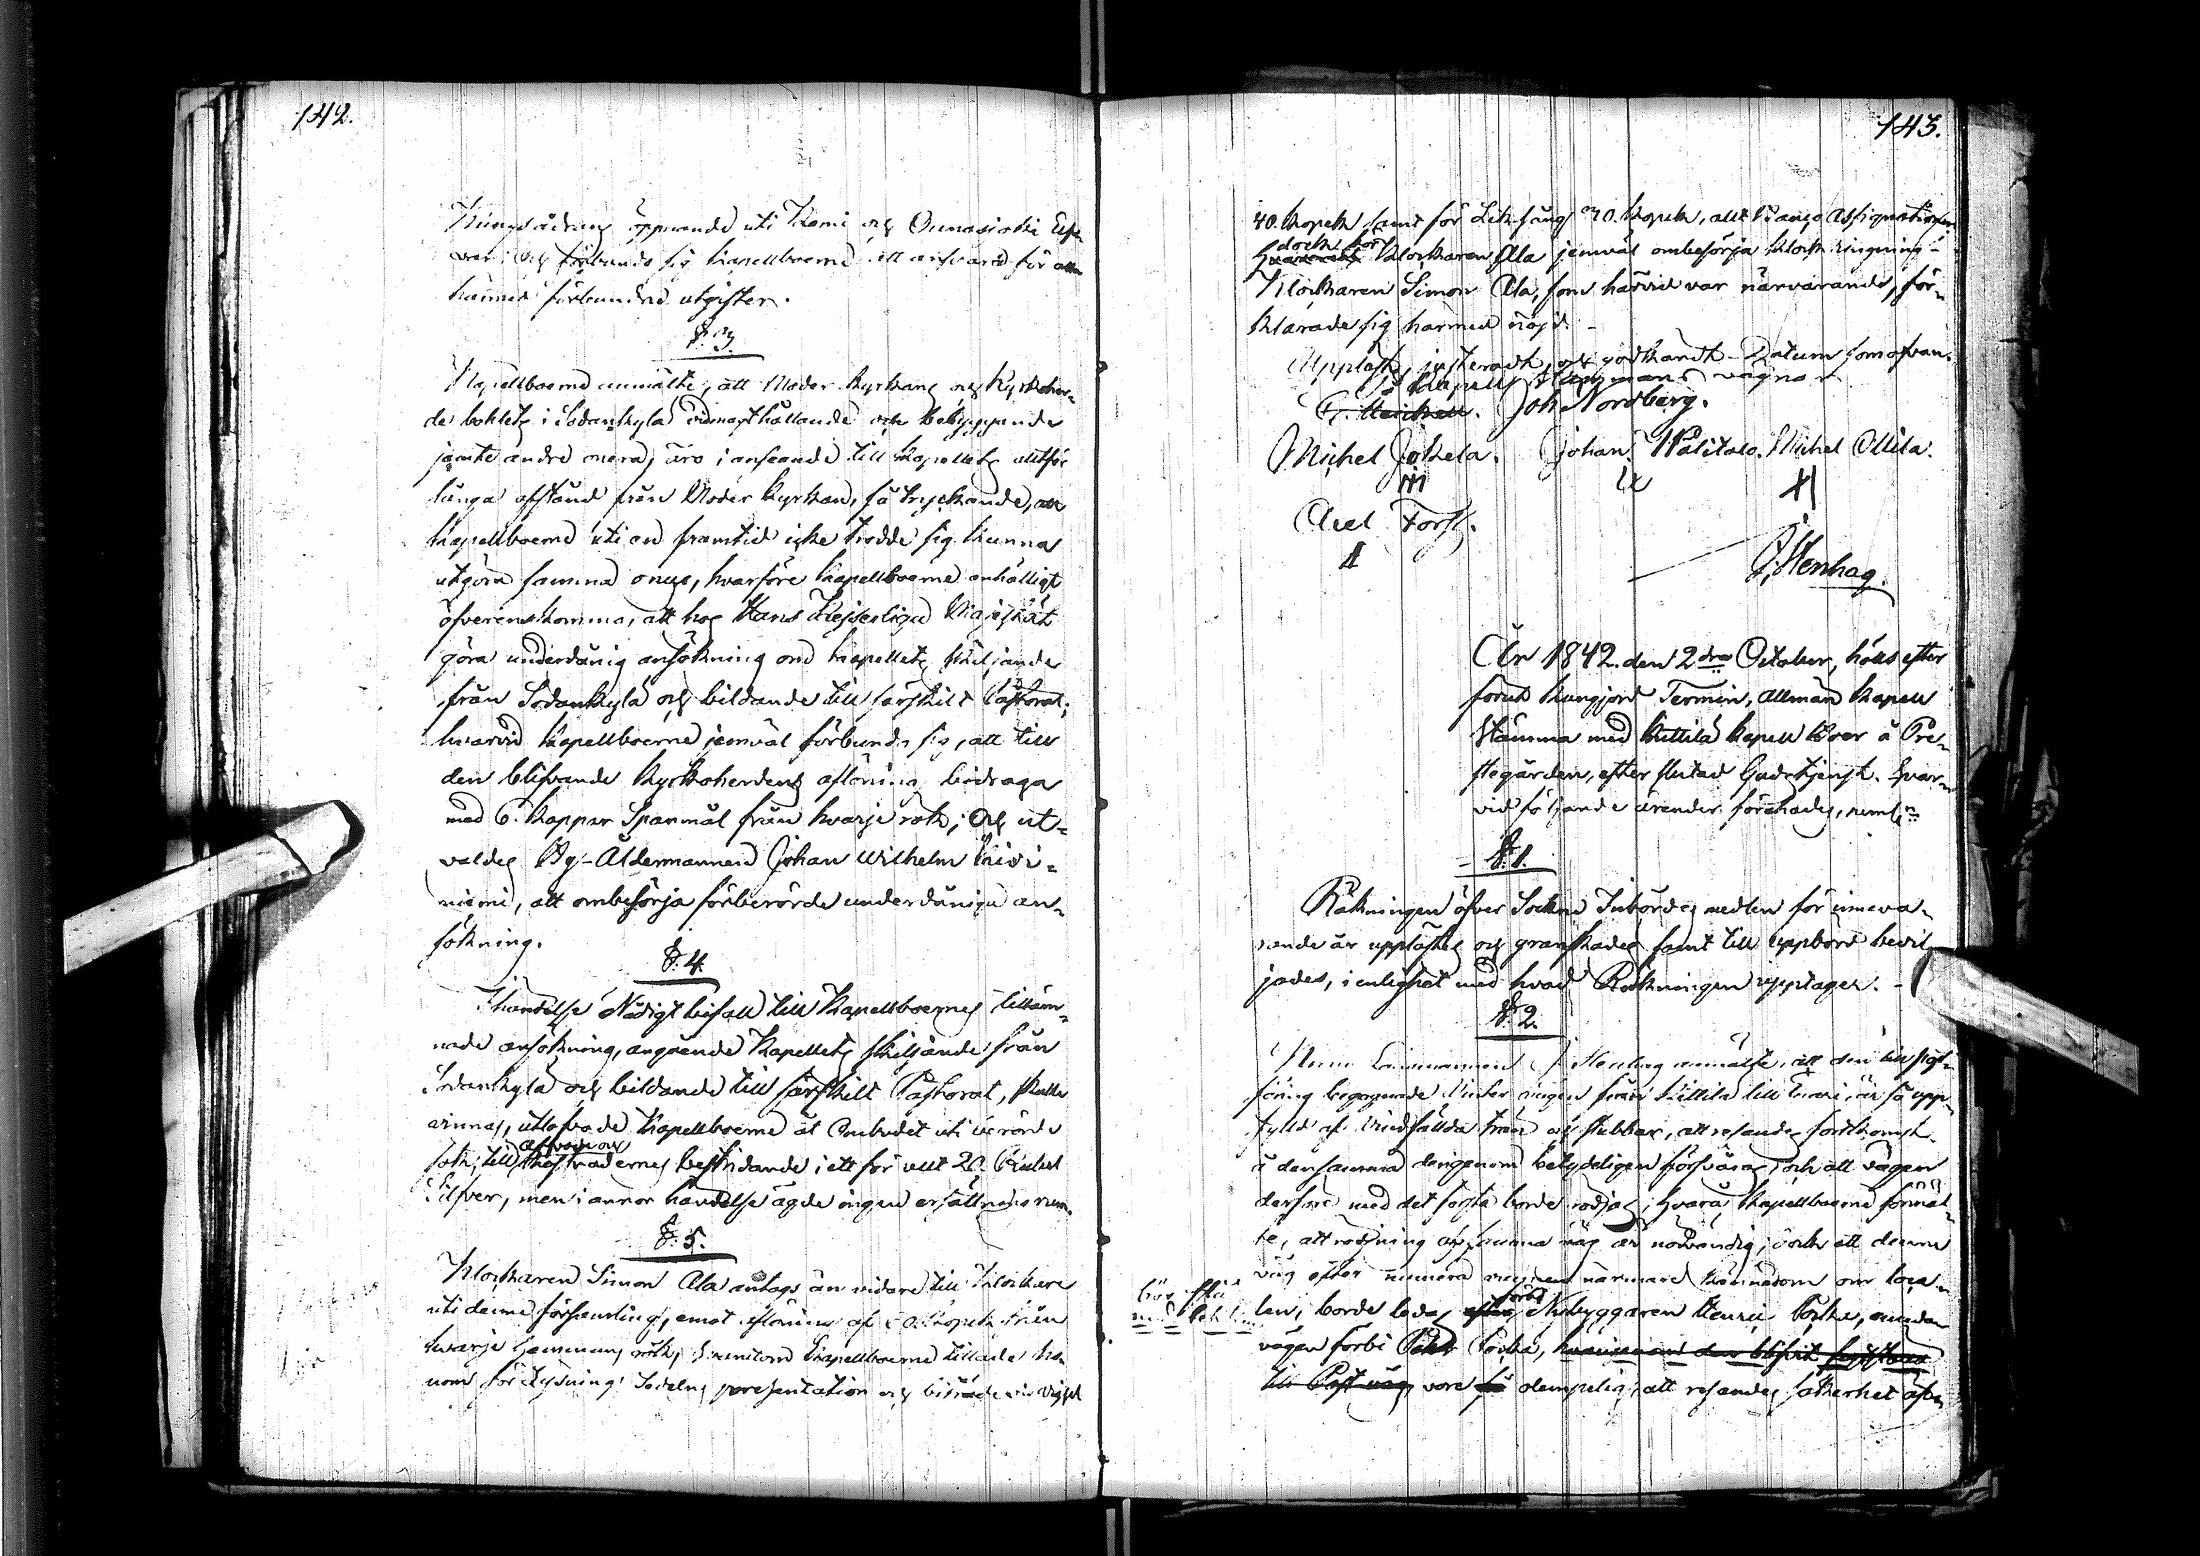 142.
Kungsådrans öppnande uti Kemi och Ounasjoki Elf-
var, och förbundo sig Kapellboerne att ansvara för alla
härmed förbundne utgifter.
§. 3.
Kapellboerne anmälte, att Moder Kyrkans och Kyrkoher-
de bohlets i Sodankylä vidmagthållande och bebyggande
jemte andre onera, äro i anseende till Kapellets alltför
långa afstånd från Moder Kyrkan, så tryckande, att
Kapellboerne uti en framtid icke trodde sig kunna
utgöra samma onera, hvarföre Kapellboerne enhälligt
öfverenskommo, att hos Hans Kejserliga Majestät
göra underdånig ansökning om Kapellets skiljande
från Sodankylä och bildande till särskilt Pastorat;
hvarvid Kapellboerne jemväl förbundo sig, att till
den blifvande Kyrkoherdens aflöning bidraga
med 6. Kappar Spanmål från hvarje rök; Och ut-
valdes By-Åldermannen Johan Wilhelm Kivi-
niemi, att ombesörja förberörde underdåniga an-
sökning.
§. 4.
I händelse Nådigt bifall till Kapellboernes tilläm-
nade ansökning, angående Kapellets skiljande från
Sodankylä och bildande till särskilt Pastorat, skulle
vinnas, utlofvade Kapellboerne åt Ombudet uti berörde
sak, till omkostnadernes bestridande i ett för allt 20. Rubel
Silfver, men i annor händelse ägde ingen ersättning rum.
§. 5.
Klockaren Simon Ala antogs än vidare till Klockare
uti denna församling, emot aflöning af Kopek från
hvarje Hemmans rök, hvarutom Kapellboerne tillade ho-
nom för Lysning Sedelns presentation och biträde vid vigsel
143.
40. kopek samt för Lik-sång 70. kopek, allt Banco Assignationer
dock bör
Klockaren Ala jemväl ombesörja klock ringning
Klockaren Simon Ala, som härvid var närvarande, för-
klarade sig härmed nöjd.
Uppläst, justeradt, och godkändt. Datum som ofvan.
På Kapell Stämmans vägnar
Joh Nordberg.
Michel Jokela. Johan Wälitalo. Michel Ollila.
Axel Forss.
J. Stenhag.
År 1842. den 2dra October, hölls efter
förut kungjord Termin, Allmän Kapell
Stämma med Kittilä Kapell Boer å Pre-
stegården, efter slutad Gudstjenst. Hvar-
vid följande ärender förehades, neml:n
§. 1.
Räkningen öfver Sockne Inbördes medlen för inneva-
rande år upplästes och granskades samt till uppbörd bevil-
jades, i enlighet med hvad Räkningen upptager.
§. 2.
Herr Länsmannen J Stenhag anmälte, att den till post-
föring begagnade Vinter vägen från Kittilä till Enari, är så upp-
fylld af vindfällda trän och stubbar, att resandes fortkomst
å densamma derigenom betydeligen försvåras, och att vägen
derföre med det första borde rödjas; Hvarå Kapellboerne förmäl-
te, att rödjning af samma väg är nödvändig; och att denna
väg efter numera vunnen närmare kännedom om loca-
len, borde ledas förbi Nybyggaren Henric Pöske, emedan
vägen förbi
vore olempelig; att resandes säkerhet